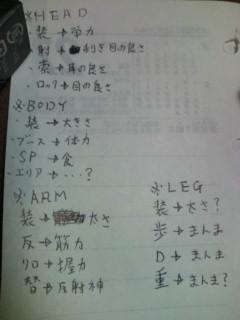 ※HEAD
・装→学力
・射→利き目の良さ
・索→耳の良さ
・ロック→目の良さ
※BODY
・装→大きさ
・ブースト→体力
・SP→食
・エリア→・・・?
※ARM
装→太さ
反→筋力
リロ→握力
替→反射神
※LEG
装→太さ?
歩→まんま
D→まんま
重→まんま?